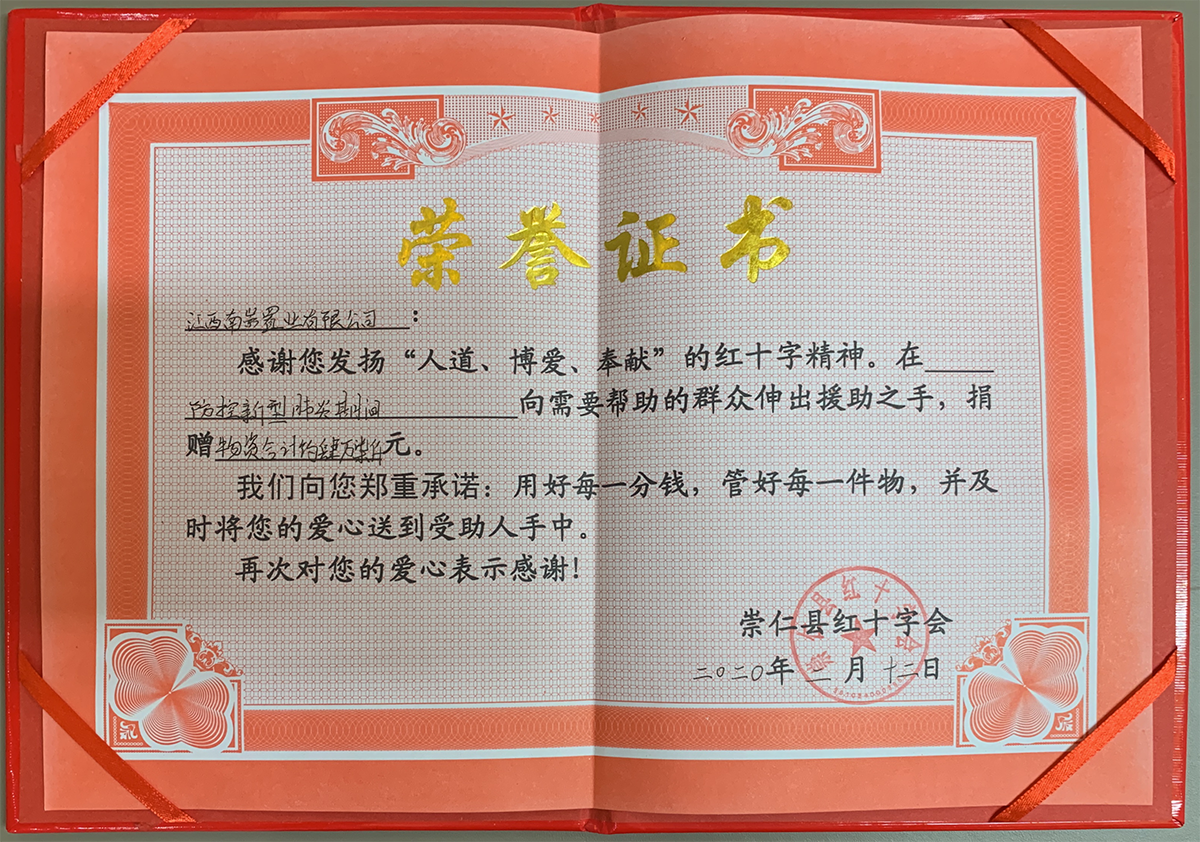 荣誉证书
江西南崇置业有限公司:
感谢您发扬“人道、博爱、奉献”的红十字精神。在
防控新型肺炎期间向需要帮助的群众伸出援助之手，捐
赠物资合计约肆万柒仟元。
我们向您郑重承诺：用好每一分钱，管好每一件物，并及
时将您的爱心送到受助人手中。
再次对您的爱心表示感谢！
崇仁县红十字会
二〇二〇年二月十二日
崇仁县红十字会